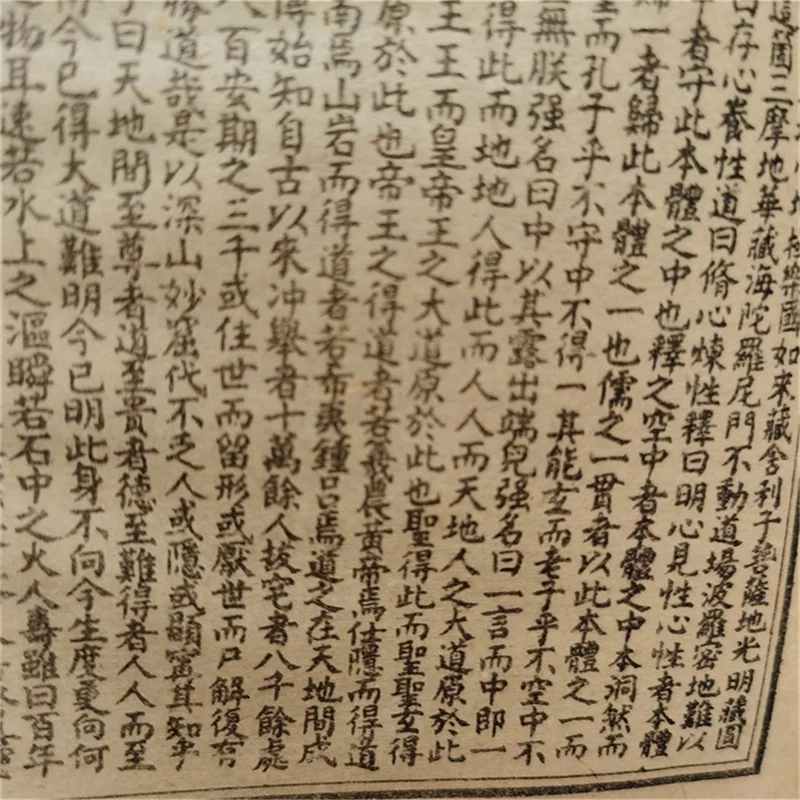 心地極樂國如來藏舍利子菩薩地光明藏圓
這箇三摩地華藏海陀羅尼門不動道場波羅密地難以
曰存心養性道曰脩心煉性釋曰明心見性心性者本體
者守此本體之中也釋之空中者本體之中本洞然而
歸一者歸此本體之一也儒之一貫者以此本體之一而
而孔子乎不守中不得一其能玄而老子乎不空中不
無朕强名曰中以其露出端皃强名曰一言而中即一
得此而地地人得此而人人而天地人之大道原於此
王王而皇帝王之大道原於此也聖得此而聖聖玄得
原於此也帝王之得道者若羲農黄帝焉仕隱而得道
南焉山岩而得道者若希夷鍾吕焉道之在天地間成
得始知自古以來冲舉者十萬餘人拔宅者八千餘處
八百安期之三千或住世而留形或厭世而尸解復有
勝道哉是以深山妙窟代不乏人或隱或顯寧其知乎
子曰天地間至尊者道至贵者德至難得者人人而至
得今已得大道難明今已明此身不向今生度更向何
物耳速若水上之漚瞬若石中之火人壽雖曰百年